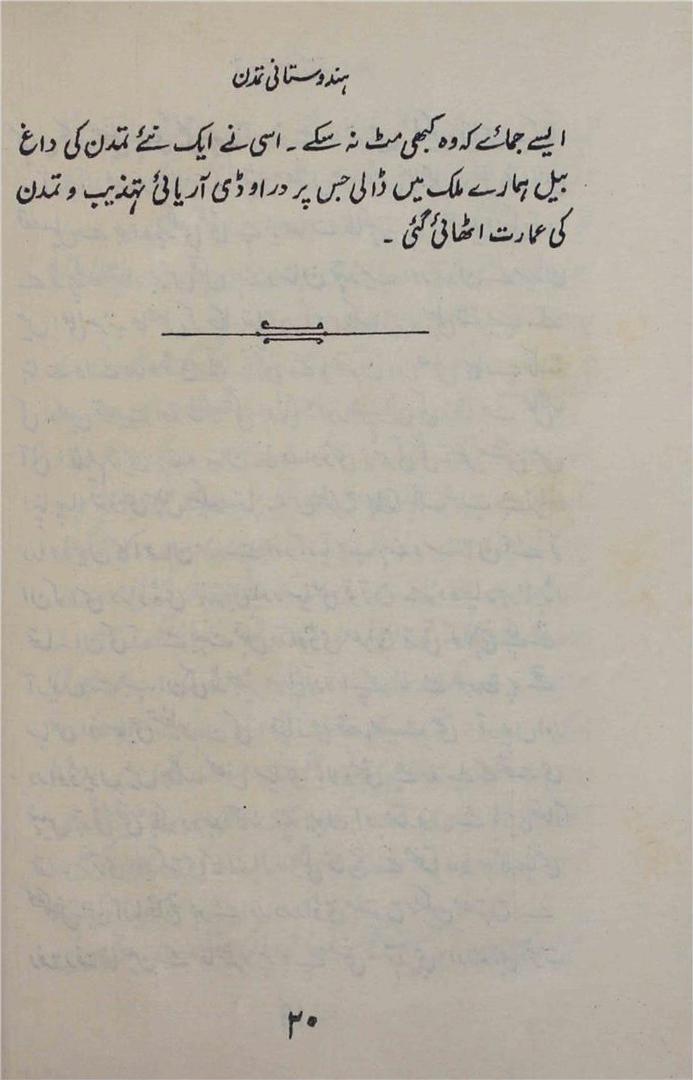 ہندوستانی تمدن
ایسے جمائے کہ وہ کبھی مٹ نہ سکے ۔ اسی نے ایک نئے تمدن کی داغ
بیل ہمارے ملک میں ڈالی جس پر دراوڈی آریائی تہذیب و تمدن
کی عمارت اٹھائی گئی ۔
۲۰